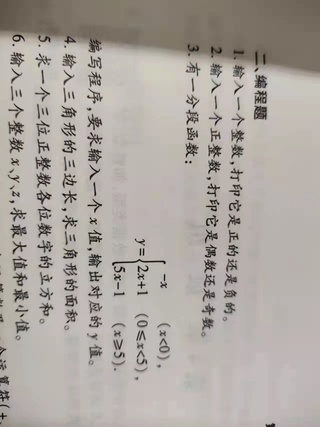 二、编程题
1. 输入一个整数,打印它是正的还是负的。
2. 输入一个正整数,打印它是偶数还是奇数。
3. 有一分段函数:
-x (x<0),
y={2x+1 (0≤x<5),
5x-1 (x≥5).
编写程序,要求输入一个 x 值,输出对应的 y 值。
4. 输入三角形的三边长,求三角形的面积。
5. 求一个三位正整数各位数字的立方和。
6. 输入三个整数 x、y、z,求最大值和最小值。